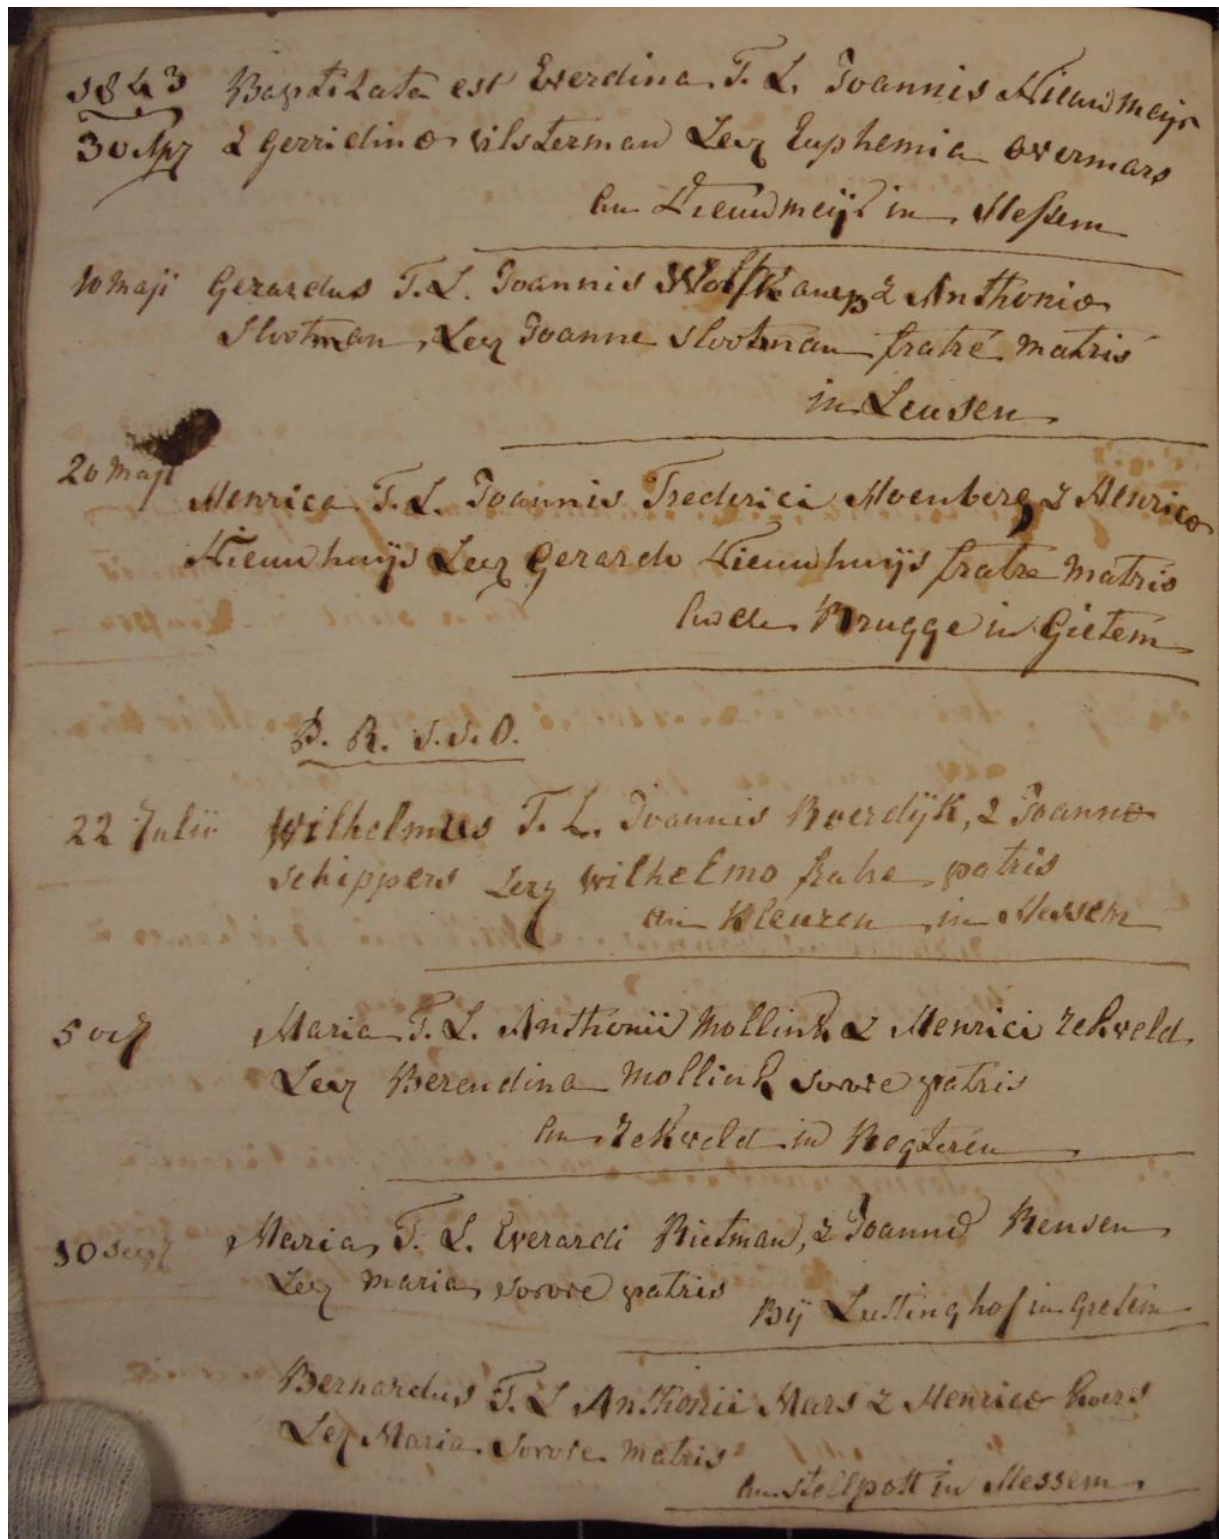 1843 Baptizata est Everdina F. L. Joannis Nieuwmeijs
30 Apr & Gerridinæ Vilsterman Lev Euphemia overmars
Am Nieuwmeijs in Hessem
10 Maji Gerardus F. L. Joannis Wolfkamp & Anthoniæ
Slootman, Lev Joanne Slootman fratre matris
in Leusen
20 Maji
Henrica F. L. Joannis Frederici Moenberg & Henricæ
Nieuwhuijs Lev Gerardo Nieuwhuijs fratre matris
an de Brugge in Gietem
P. R. S. S. O.
22 Julii Wilhelmus F. L. Joannis Boerdijk, & Joannæ
Schippers Lev Wilhelmo fratre patris
am Kleuren in Hessem
5 Maria F. L. Anthonii Mollink & Henrici Zekveld
Lev Berendina Mollink sorore patris
Am Zekveld in Regteren
Maria F. L. Everardi Rietman, & Joannæ Rensen
10 Sept
Lev Maria sorore patris
Bij Lustinghof in Gietem
Bernardus F. L. Anthonii Mars & Henricæ
Lev Maria sorore matris
Am in Hessem